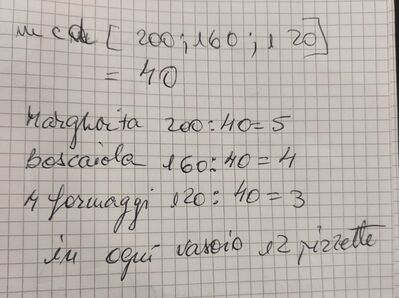 mcd [200;160;120]
= 40
Margherita 200:40=5
Boscaiola 160:40=4
4 formaggi 120:40=3
in ogni vassoio 12 pizzette